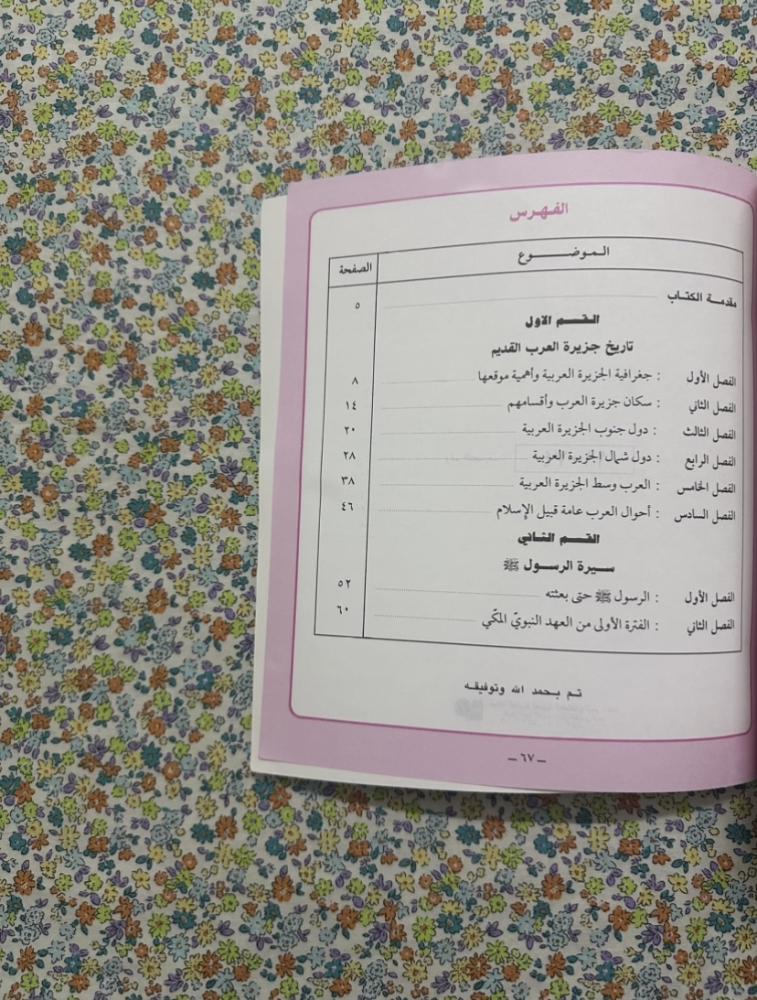 الفهرس
الموضوع الصفحة
مقدمة الكتاب ٥
القسم الاول
تاريخ جزيرة العرب القديم
الفصل الأول : جغرافية الجزيرة العربية وأهمية موقعها ٨
الفصل الثاني : سكان جزيرة العرب وأقسامهم ١٤
الفصل الثالث : دول جنوب الجزيرة العربية ٢٠
الفصل الرابع : دول شمال الجزيرة العربية ٢٨
الفصل الخامس : العرب وسط الجزيرة العربية ٣٨
الفصل السادس : أحوال العرب عامة قبيل الإسلام ٤٦
القسم الثاني
سيرة الرسول ﷺ
الفصل الأول : الرسول ﷺ حتى بعثته ٥٢
الفصل الثاني : الفترة الأولى من العهد النبويّ المكّي ٦٠
تم بحمد الله وتوفيقه
– ٦٧ –